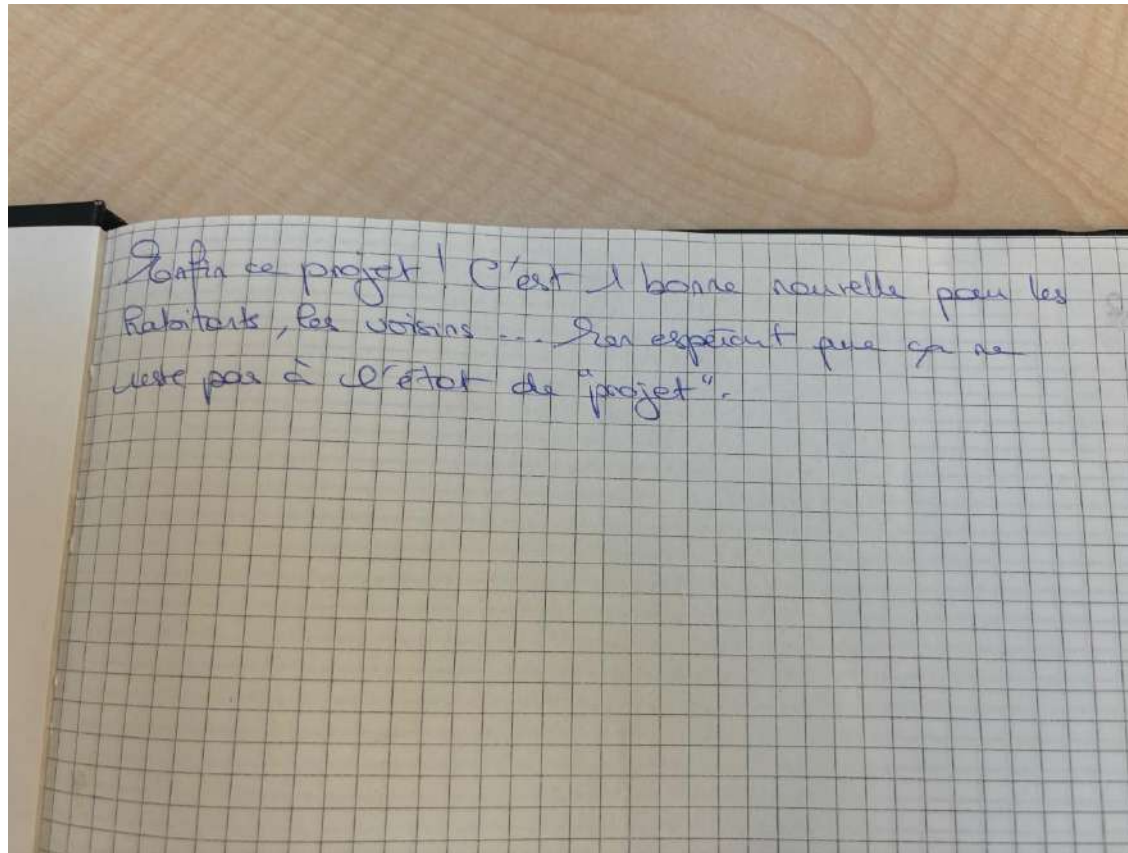 Enfin ce projet ! C'est 1 bonne nouvelle pour les
habitants, les voisins ... En espérant que ça ne
reste pas à l'état de "projet".